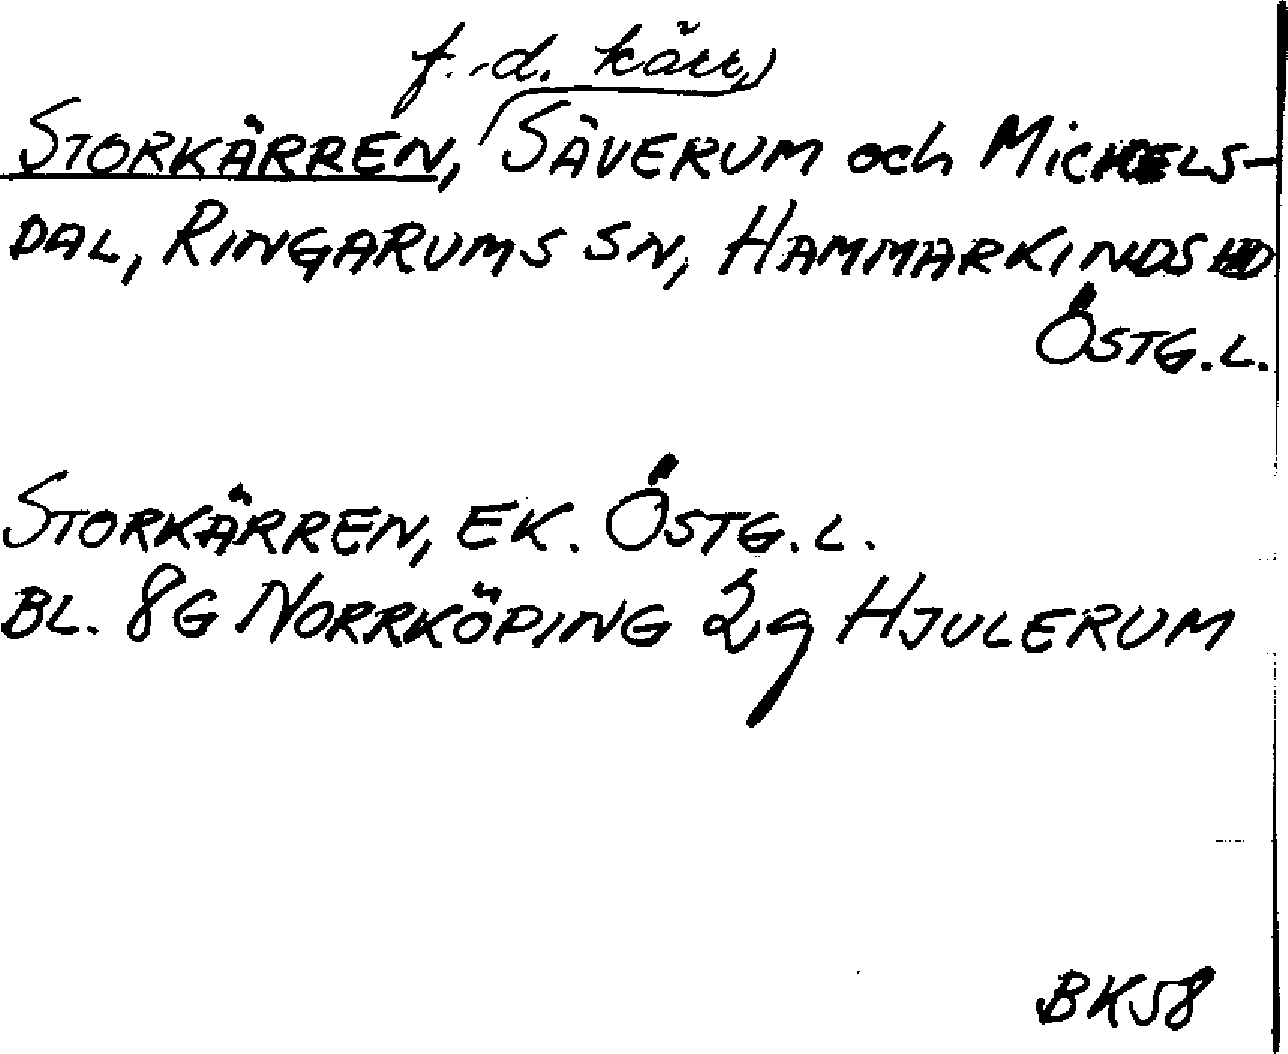 f.d. kärr,
STORKÄRREN, SÄVERUM och MICHELS-
DAL, RINGARUMS SN, HAMMARKINDS HD
ÖSTG.L.
STORKÄRREN, EK. ÖSTG.L.
BL. 8G NORRKÖPING 2g HJULERUM
BK58